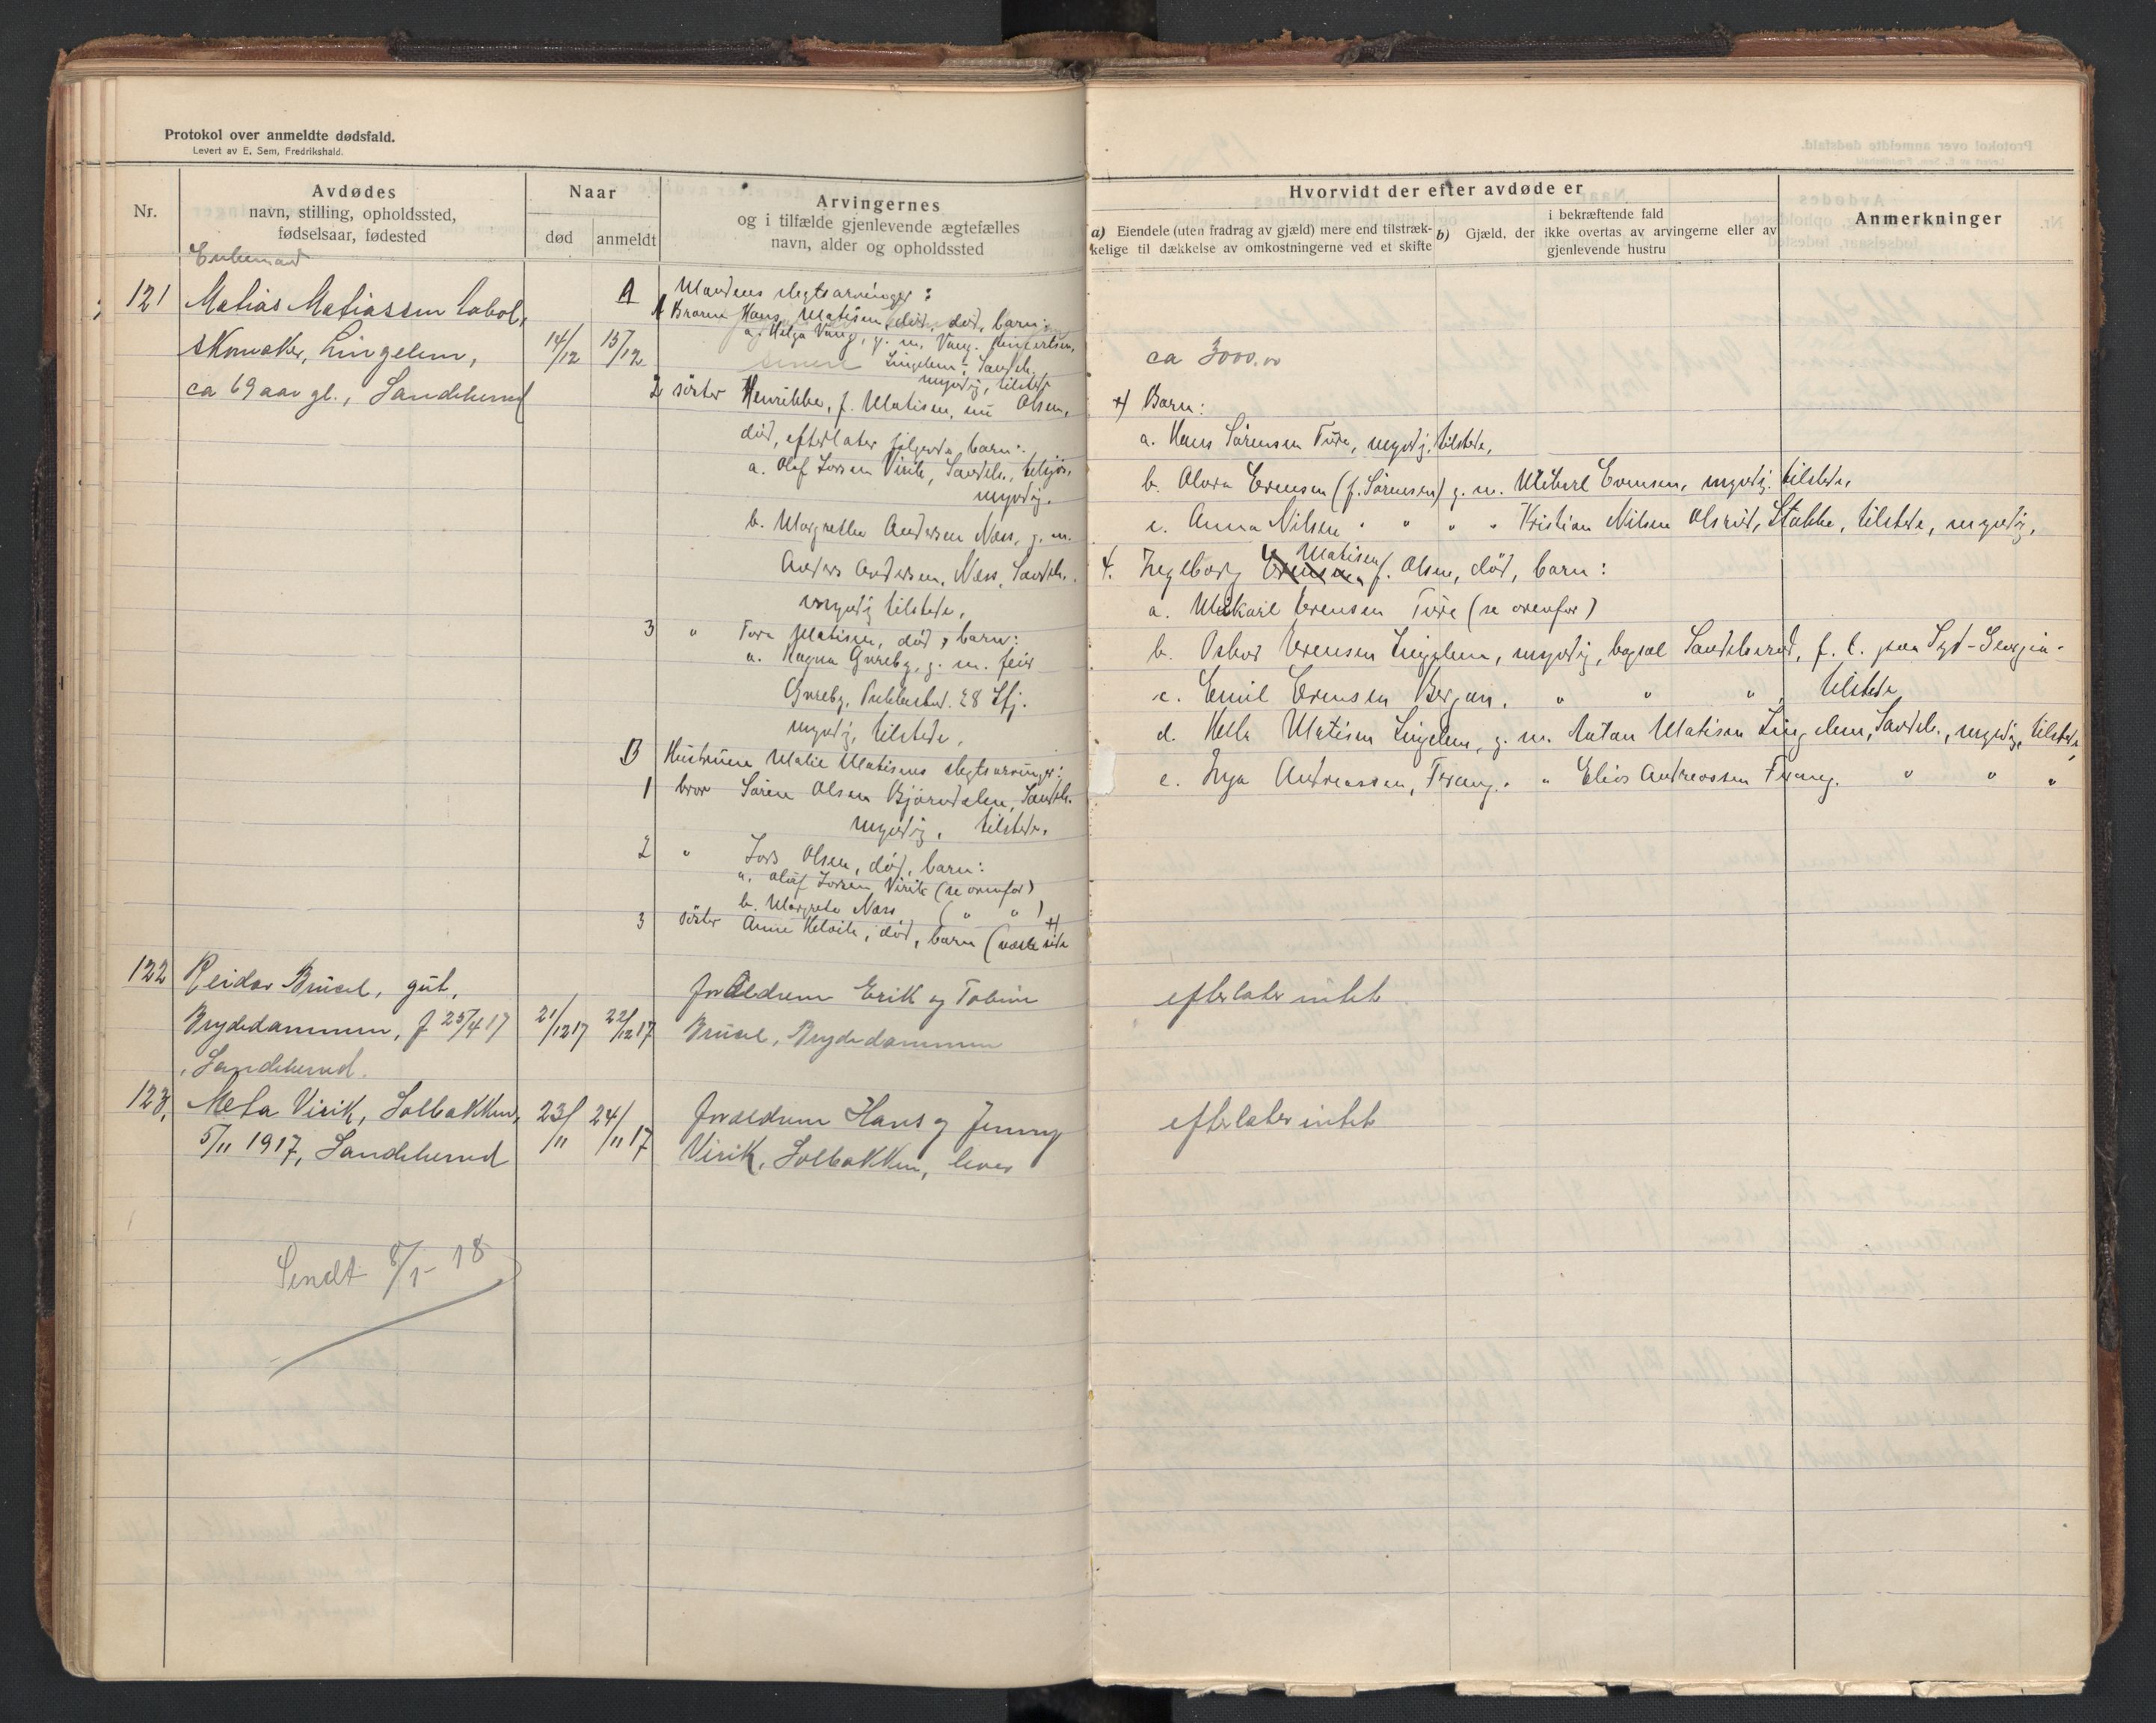 Protokol over anmeldte dødsfald.
Levert av E. Sem, Fredrikshald.
Nr.
Avdødes
navn, stilling, opholdssted,
fødselsaar, fødested
Naar
død
anmeldt
Arvingernes
og i tilfælde gjenlevende ægtefælles
navn, alder og opholdssted
Enkemand
121 Matias Matiassen
skomaker, Lingelem, 14/12 15/12
ca 69 aar gl., Sandeherred
A Mandens slegtsarvinger:
1 Broren Hans Matisen, død, barn:
a. Helga Vang, g. m. Vang.
Lingelem, Sandeh.
myndig, tilstede
2 søster Henrikke, f. Matisen, nu Olsen,
død, efterlater følgende barn:
a. Olaf Larsen Virik, Sandeh.,
myndig.
b. Margrethe Andersen Næss, g. m.
Anders Andersen, Næss, Sandeh.
myndig tilstede,
3 " Tora Matisen, død, barn:
a. Ragna Gureby, g. m. feier
Gureby, 28 Sfj.
myndig, tilstede,
B Hustruens Malie Matisens slegtsarvinger:
1 bror Søren Olsen Bjørndalen, Sandeh.
myndig, tilstede.
2 " Lars Olsen, død, barn:
a. Olaf Larsen Virik (se ovenfor)
b. Margrete Næss ( " " )
3 søster Anne Helvik, død, barn (næste side +)
122 Reidar Brusel, gut,
Brydedammen, f 25/4 17 21/12 17 22/12 17
Sandeherred.
forældrene Erik og Tobine
Brusel, Brydedammen
123, Meta Virik, Solbakken, 23/11 24/11 17
5/11 1917, Sandeherred
forældrene Hans og Jenny
Virik, Solbakken, lever
Sendt 8/1-18
Hvorvidt der efter avdøde er
a) Eiendele (uten fradrag av gjæld) mere end tilstræk-
kelige til dækkelse av omkostningerne ved et skifte
b) Gjæld, der
i bekræftende fald
ikke overtas av arvingerne eller av
gjenlevende hustru
Anmerkninger
ca 3000,00
+) Barn:
a. Hans Sørensen Ture, myndig, tilstede,
b. Alvra Evensen (f. Sørensen) g. m. Mikael Evensen, myndig, tilstede,
c. Anna Nilsen " " " " Kristian Nilsen Olsrød, Stokke, tilstede, myndig,
4. Ingeborg Matisen f. Olsen, død, barn:
a. Mikael Evensen Ture (se ovenfor)
b. Oskar Evensen Lingelem, myndig, bopæl Sandeherred, f. t. paa Syd-Georgia.
c. Emil Evensen Bergan, " " ", tilstede
d. Helle Matisen Lingelem, g. m. Anton Matisen Lingelem, Sandeh., myndig, tilstede,
e. Inga Andreassen, Framnæs. " Elias Andreassen " " "
efterlater intet
efterlater intet